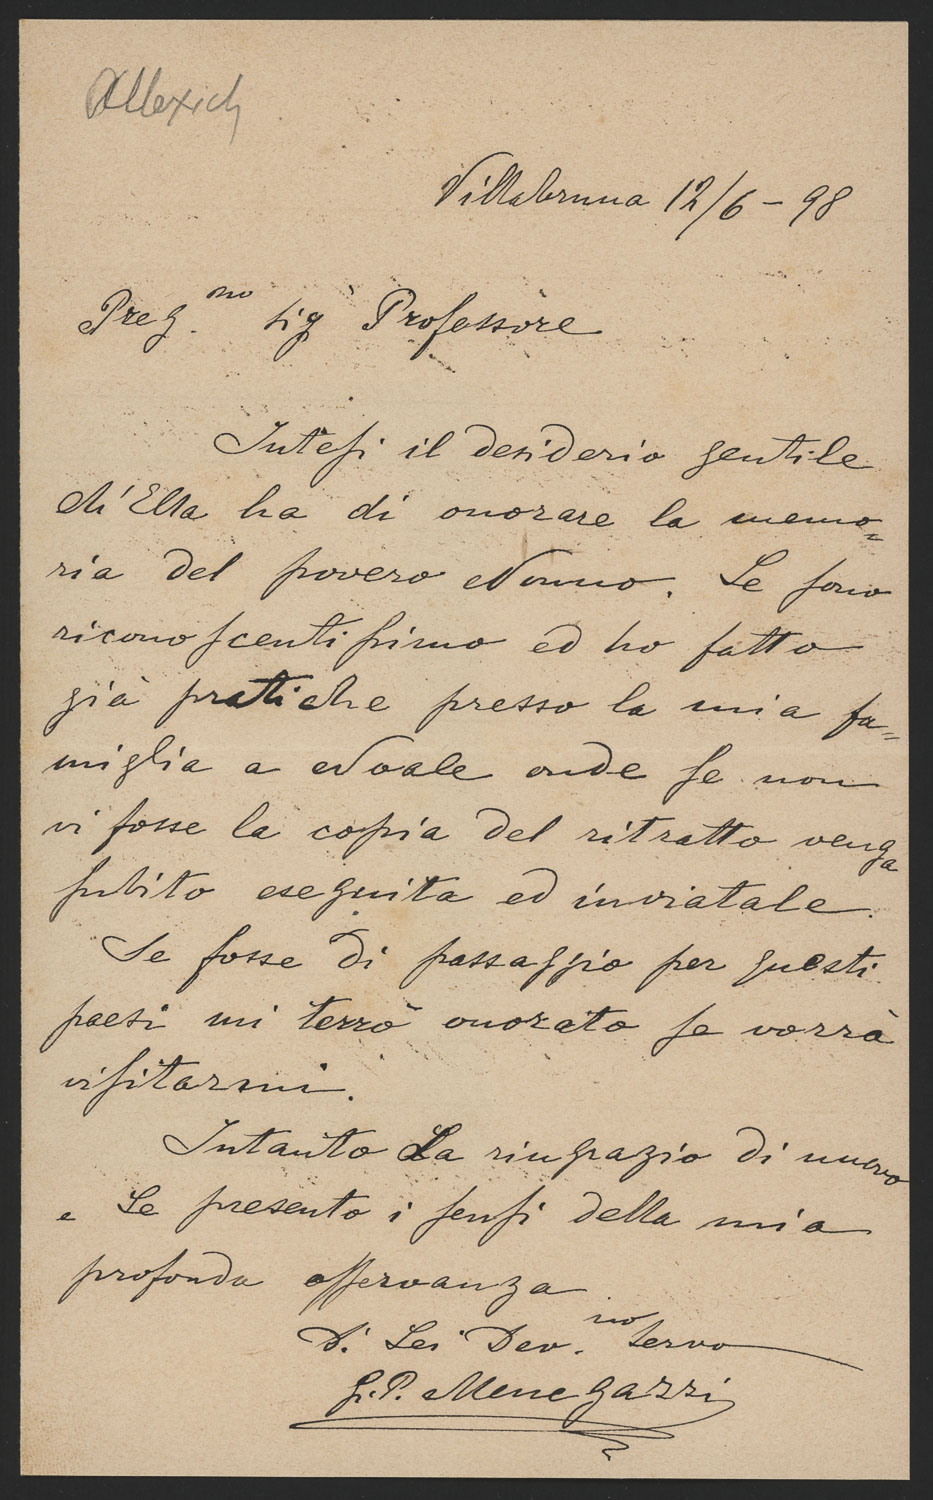 Allexich
Villabruna 12/6 - 98
Preg.mo Sig Professore
Intesi il desiderio gentile
ch'Ella ha di onorare la memo=
ria del povero Nonno. Le sono
riconoscentissimo ed ho fatto
già pratiche presso la mia fa=
miglia a Noale onde se non
vi fosse la copia del ritratto venga
subito eseguita ed inviatale.
Se fosse di passaggio per questi
paesi mi terrò onorato se vorrà
visitarmi.
Intanto La ringrazio di nuovo
e Le presento i sensi della mia
profonda osservanza
Di Lei Dev.mo servo
G. P. Menegazzi